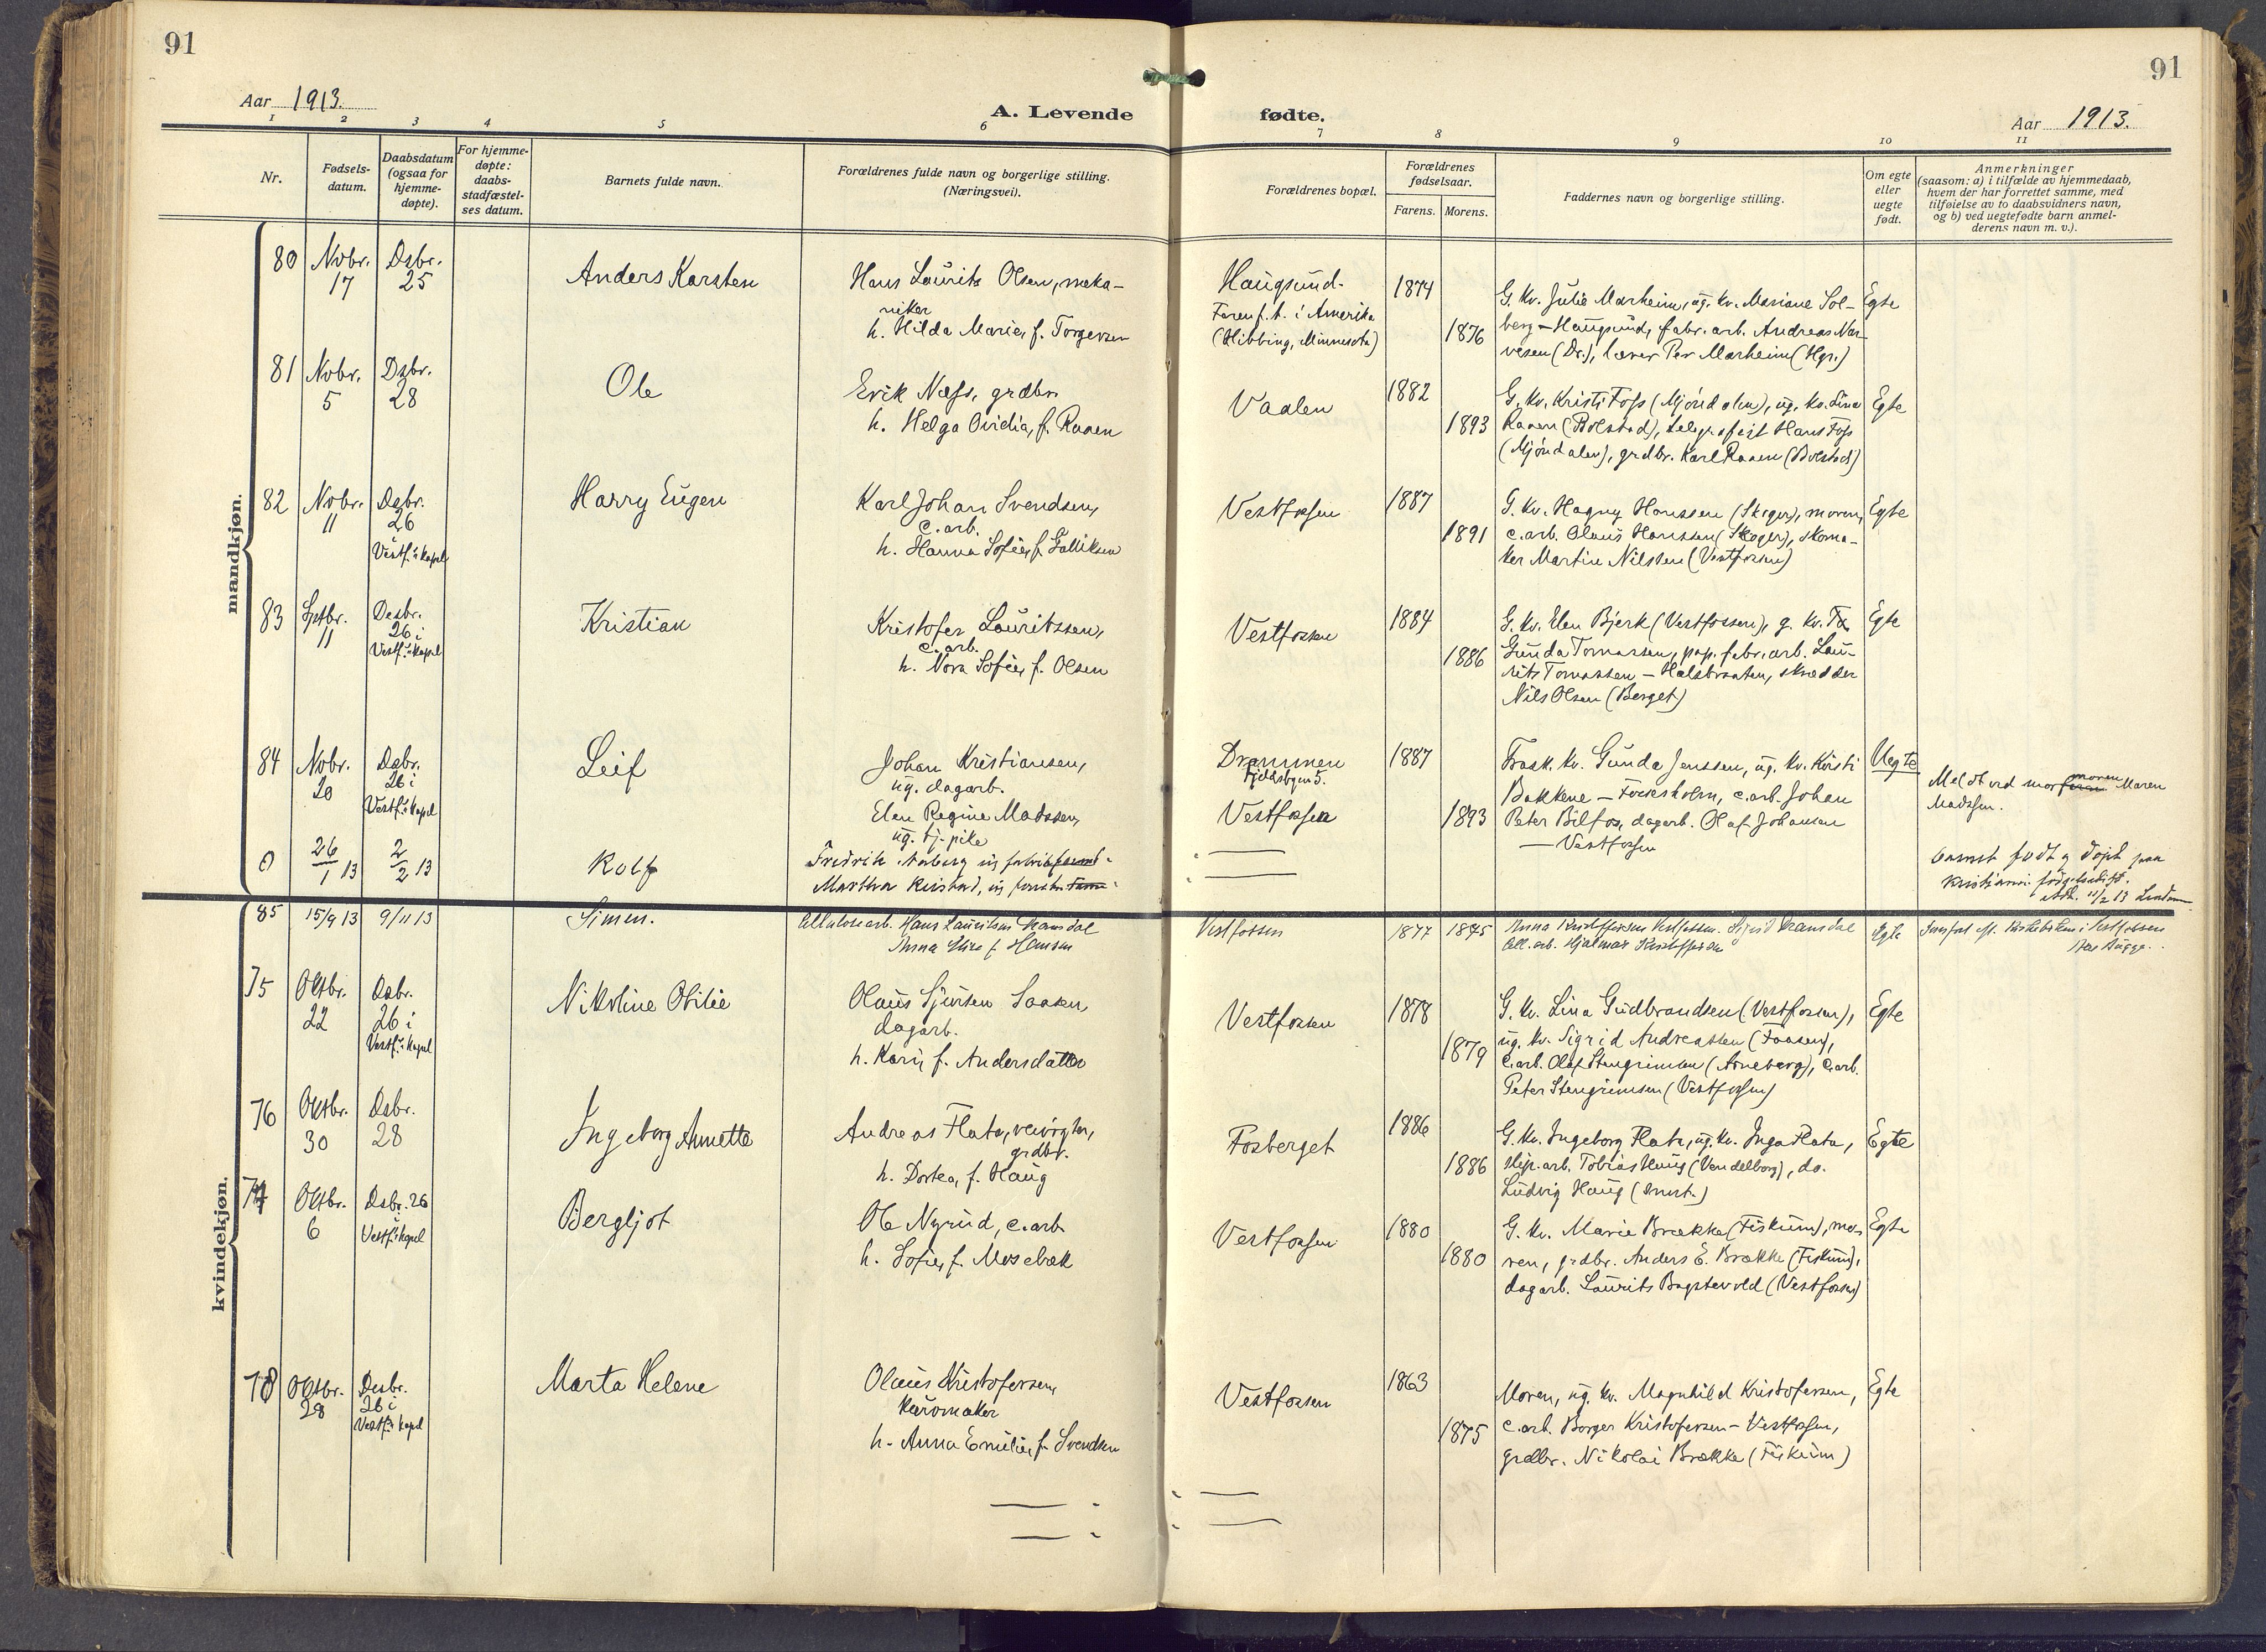 91
91
Aar 1913.
A. Levende
fødte.
Aar 1913.
1 2 3 4 5 6 7 8 9 10 11
Nr.
Fødsels-
datum.
Daabsdatum
(ogsaa for
hjemme-
døpte).
For hjemme-
døpte:
daabs-
stadfæstel-
ses datum.
Barnets fulde navn.
Forældrenes fulde navn og borgerlige stilling.
(Næringsvei).
Forældrenes bopæl.
Forældrenes
fødselsaar.
Farens. Morens.
Faddernes navn og borgerlige stilling.
Om egte
eller
uegte
født.
Anmerkninger
(saasom: a) i tilfælde av hjemmedaab,
hvem der har forrettet samme, med
tilføielse av to daabsvidners navn,
og b) ved uegtefødte barn anmel-
derens navn m. v.).
mandkjøn.
80
Nvbr.
17
Dsbr.
25
Anders Karsten
Hans Laurits Olsen, meka-
niker
h. Hilda Marie, f. Torgersen
Haugsund.
Faren f. t. i Amerika
(Hibbing, Minnesota)
1874
1876
G. kv. Julie Marheim, ug. kv. Mariane Sol-
berg - Haugsund, fabr. arb. Andreas Nar-
vesen (Dr.), lærer Per Marheim (Hgs.)
Egte
81
Nvbr.
5
Dsbr.
28
Ole
Erik Næss, grdbr.
h. Helga Ovidia, f. Raaen
Vaalen
1882
1893
G. kv. Kristi Foss (Mjøndalen), ug. kv. Lina
Raaen (Bolstad), telegrafist Hans Foss
(Mjøndalen), grdbr. Karl Raaen (Bolstad)
Egte
82
Nvbr.
11
Dsbr.
26
i
Vestf.'s kapel
Harry Eugen
Karl Johan Svendsen,
c. arb.
h. Hanna Sofie, f. Gulliksen
Vestfossen
1887
1891
G. kv. Hagny Hanssen (Skoger), moren,
c. arb. Olaus Hanssen (Skoger), skoma-
ker Martin Nilssen (Vestfossen)
Egte
83
Sptbr.
11
Desbr.
26 i
Vestf.'s kapel
Kristian
Kristofer Lauritssen,
c. arb.
h. Nora Sofie, f. Olsen
Vestfossen
1884
1886
G. kv. Elen Bjerk (Vestfossen), g. kv.
Gunda Tomassen, pap. fabr. arb. Lau-
rits Tomassen - Halsbraaten, skrædder
Nils Olsen (Berget)
Egte
84
Nvbr.
20
Dsbr.
26 i
Vestf.'s kapel
Leif
Johan Kristiansen,
ug. dagarb.
Elen Regine Madssen,
ug. tj. pike
Drammen
Fjeldsbyen 5.
Vestfossen
1887
1893
Frask. kv. Gunda Jenssen, ug. kv. Kirsti
Bakkene - Fockesholm, c. arb. Johan
Peter Bilfos, dagarb. Olaf Johansen
- Vestfossen
Uegte
Meldt ved mormoren Maren
Madssen.
0
26/1 13
2/2 13
Rolf
Fredrik
Martha
Barnet født og døpt paa
Kristiania fødselsstift.
11/2 13
85
15/9 13
9/11 13
Simen.
Cellulosearb. Hans Lauritsen Ramsdal
Anna Elise f. Hansen
Vestfossen
1877
1875
Anna Kristoffersen Vestfossen. Sigrid Ramsdal
Cell. arb. Hjalmar Kristoffersen
Egte
kvindekjøn.
75
Oktbr.
22
Dsbr.
26 i
Vestf.'s kapel
Nikoline Otilie
Olaus Sjursen Saasen,
dagarb.
h. Kari, f. Andersdatter
Vestfossen
1878
1879
G. kv. Lina Gudbrandsen (Vestfossen),
ug. kv. Sigrid Andreassen (Faasen),
c. arb. Olaf Stengrimsen (Arneberg), c. arb.
Peter Stengrimsen (Vestfossen)
Egte
76
Oktbr.
30
Dsbr.
28
Ingeborg Annette
Andreas Flata, veivogter,
grdbr.
h. Dortea, f. Haug
Fosberget
1886
1886
G. kv. Ingeborg Flata, ug. kv. Inga Flata,
slip. arb. Tobias Haug (Vendelborg), do.
Ludvig Haug
Egte
77
Oktbr.
6
Dsbr. 26
i
Vestf.'s kapel
Bergljot
Ole Nyrud, c. arb.
h. Sofie, f. Mosebæk
Vestfossen
1880
1880
G. kv. Marie Brække (Fiskum), mo-
ren, grdbr. Anders E. Brække (Fiskum),
dagarb. Laurits Bagstevold (Vestfossen)
Egte
78
Oktbr.
28
Desbr.
26 i
Vestf.'s kapel
Marta Helene
Olaus Kristofersen,
kurvmaker
h. Anna Emilie, f. Svendsen
Vestfossen
1863
1875
Moren, ug. kv. Magnhild Kristofersen,
c. arb. Borger Kristofersen - Vestfossen,
grdbr. Nikolai Brække (Fiskum)
Egte